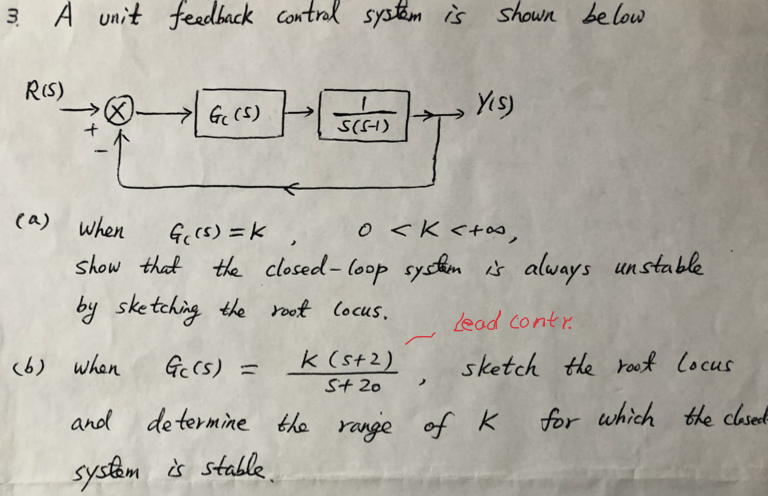 3. A unit feedback control system is shown below
R(s) + - Gc(s) 1/s(s-1) Y(s)
(a) when Gc(s) = K , 0 < K < +∞,
show that the closed-loop system is always unstable
by sketching the root locus.
Lead contr.
(b) when Gc(s) = K(s+2)/s+20 , sketch the root locus
and determine the range of K for which the closed
system is stable.